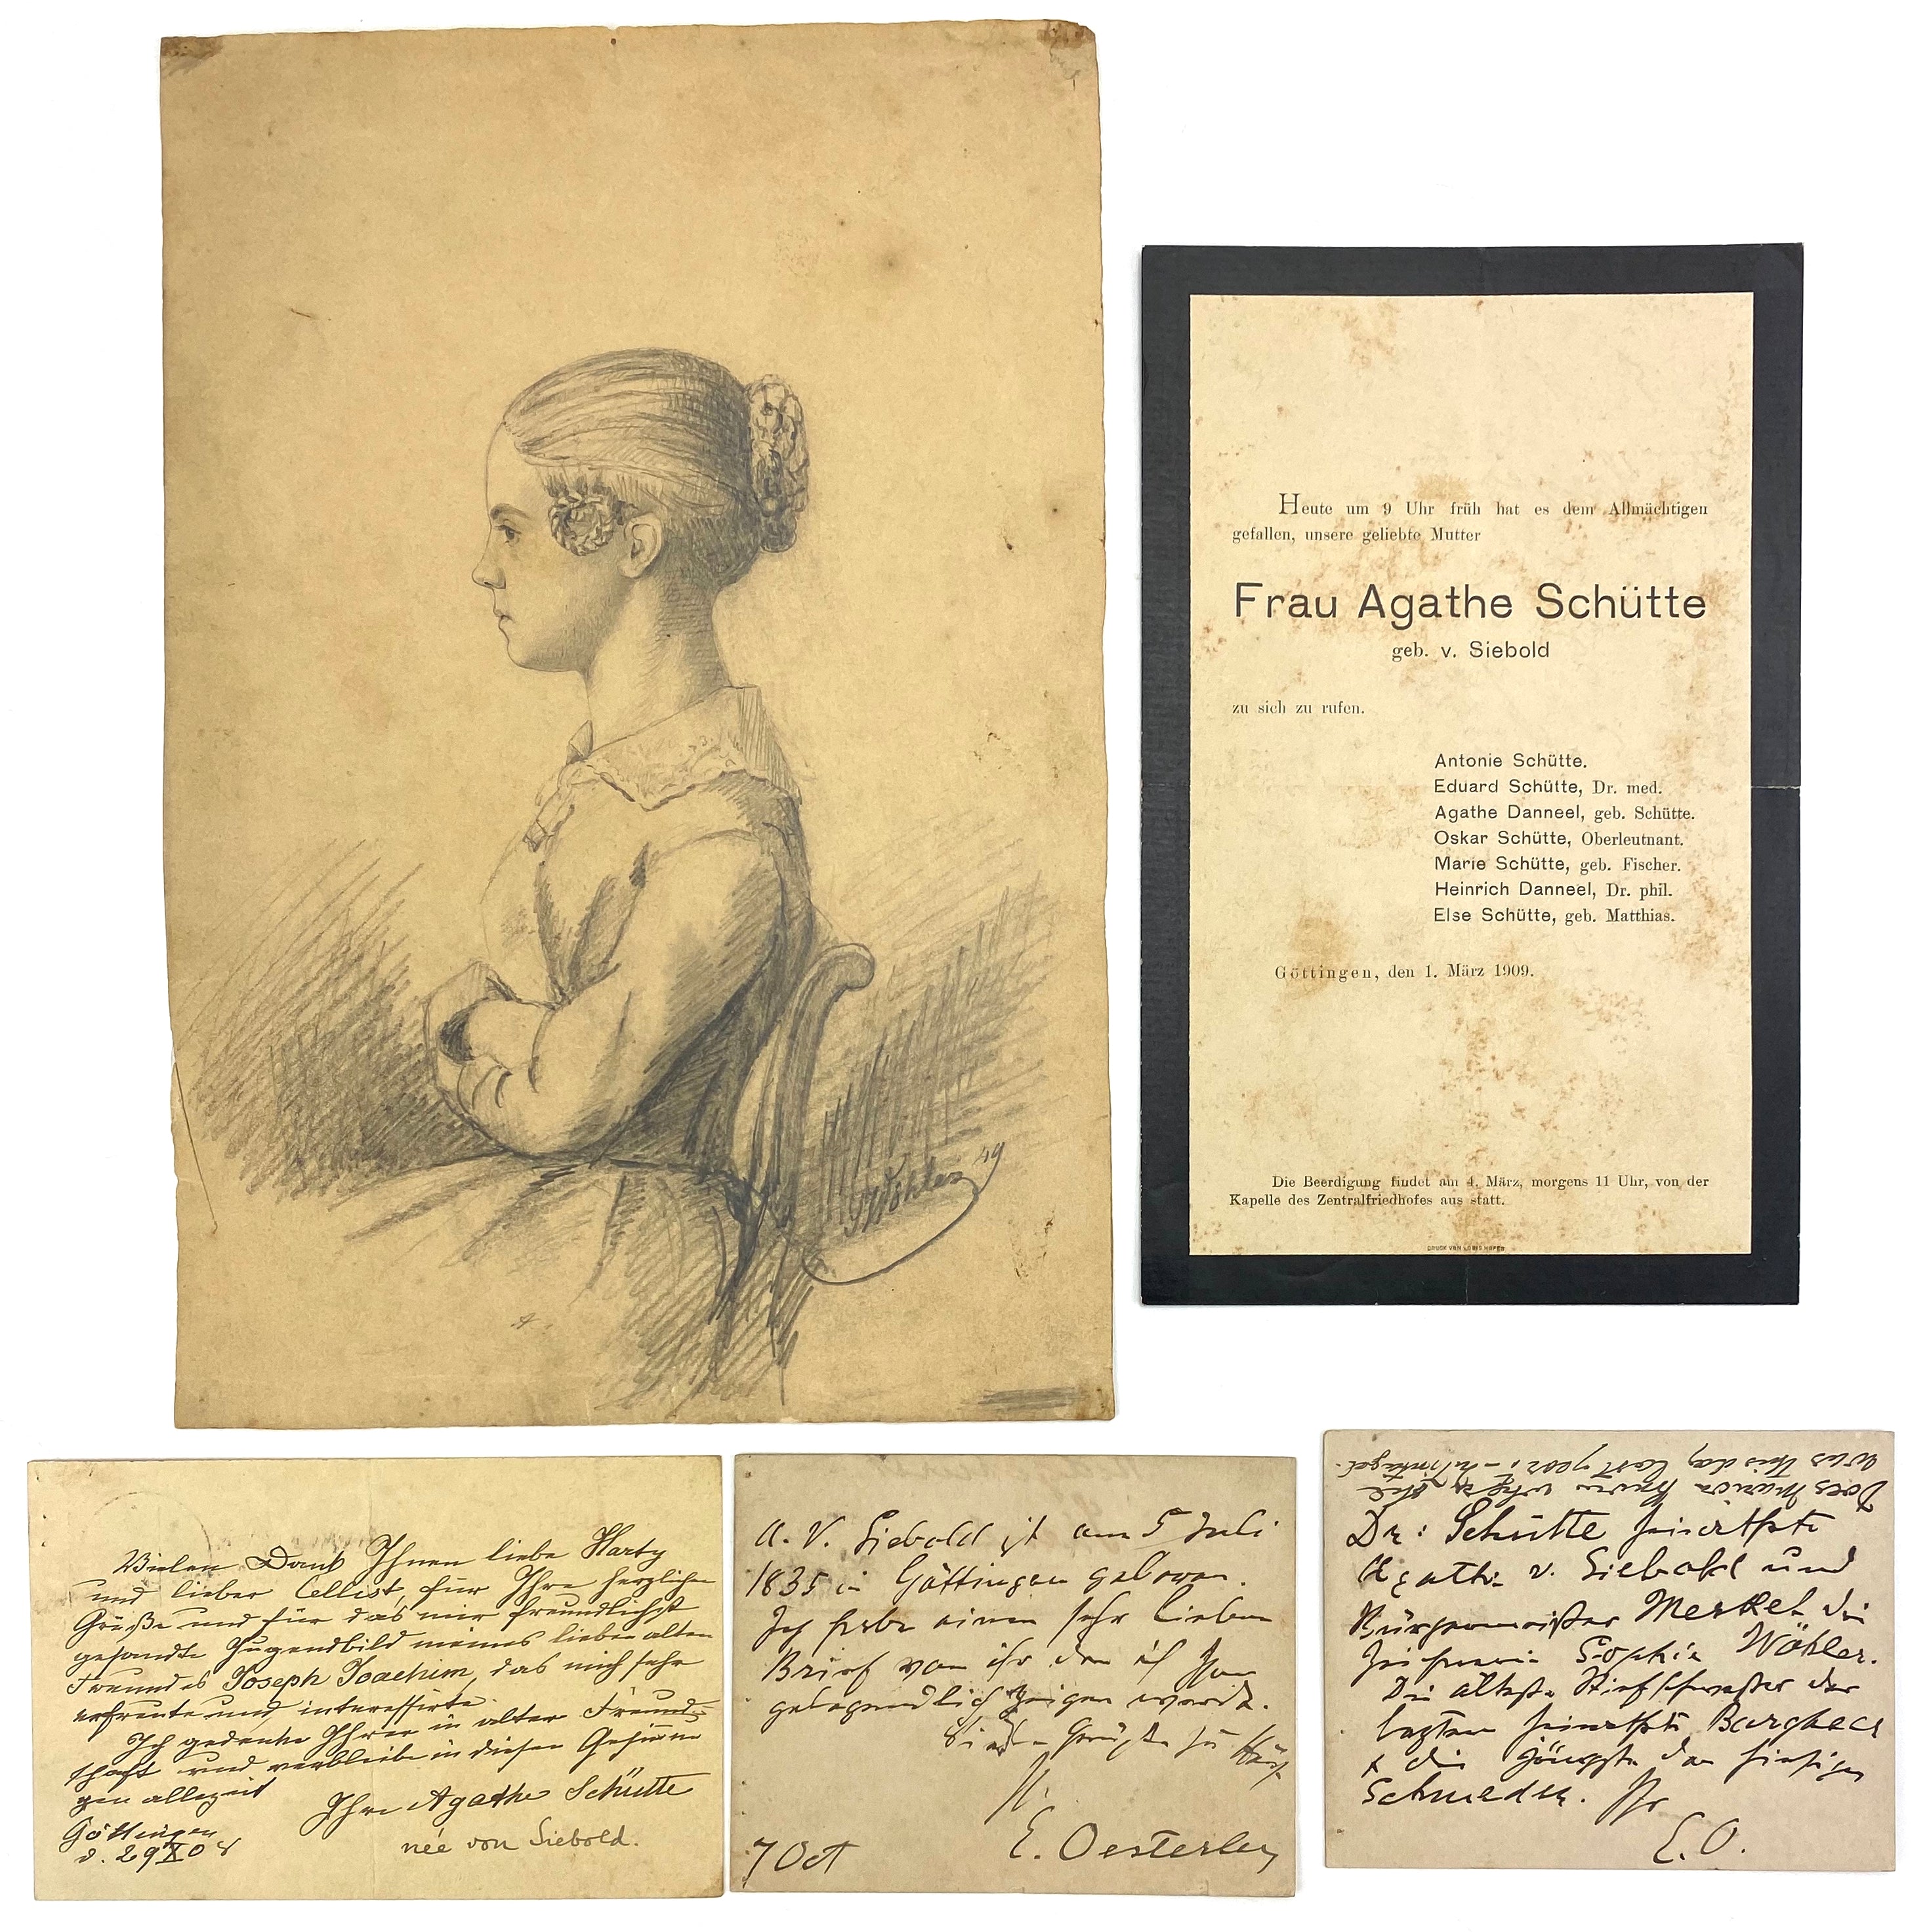 Wöhler 49
Heute um 9 Uhr früh hat es dem Allmächtigen
gefallen, unsere geliebte Mutter
Frau Agathe Schütte
geb. v. Siebold
zu sich zu rufen.
Antonie Schütte.
Eduard Schütte, Dr. med.
Agathe Danneel, geb. Schütte.
Oskar Schütte, Oberleutnant.
Marie Schütte, geb. Fischer.
Heinrich Danneel, Dr. phil.
Else Schütte, geb. Matthias.
Göttingen, den 1. März 1909.
Die Beerdigung findet am 4. März, morgens 11 Uhr, von der
Kapelle des Zentralfriedhofes aus statt.
Vielen Dank Ihnen liebe
und lieber Cellist, für Ihre herzlichen
Grüße und für das mir freundlichst
gesandte Jugendbild meines lieben alten
Freundes Joseph Joachim, das mich sehr
erfreute und interessirte.
Ich gedenke Ihrer in alter Freund-
schaft und verbleibe in diesen Gesinnun
gen allezeit
Ihre Agathe Schütte
née von Siebold.
Göttingen
d. 29 X 08
A. v. Siebold ist am 5 Juli
1835 in Göttingen geboren.
Ich habe einen sehr lieben
Brief von ihr den ich Ihnen
gelegendlich zeigen werde.
Grüße zu Haus
Ihr
E. Oesterley
7 Oct
was this day last year,
Does
Dr: Schütte heirathete
Agathe v. Siebold und
Bürgermeister Merkel die
Sophie Wöhler.
Die älteste Stiefschwester der
letzten heirathete
& die jüngste den hiesigen
Schmeden. Ihr
E. O.